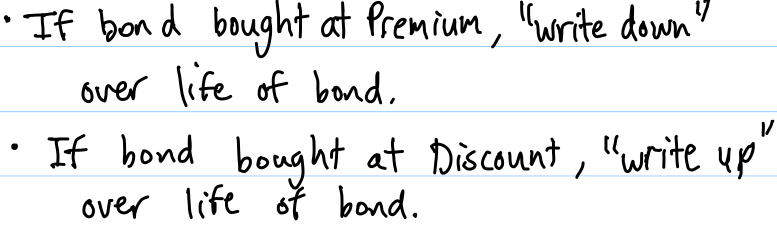 • If bond bought at Premium, "write down"
over life of bond.
• If bond bought at Discount, "write up"
over life of bond.